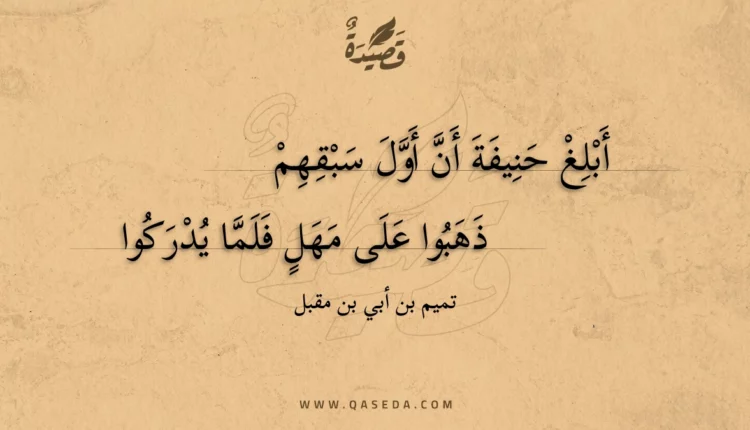 قَصِيدَةٌ
أَبْلِغْ حَنِيفَةَ أَنَّ أَوَّلَ سَبْقِهِمْ
ذَهَبُوا عَلَى مَهَلٍ فَلَمَّا يُدْرَكُوا
تميم بن أبي بن مقبل
WWW.QASEDA.COM